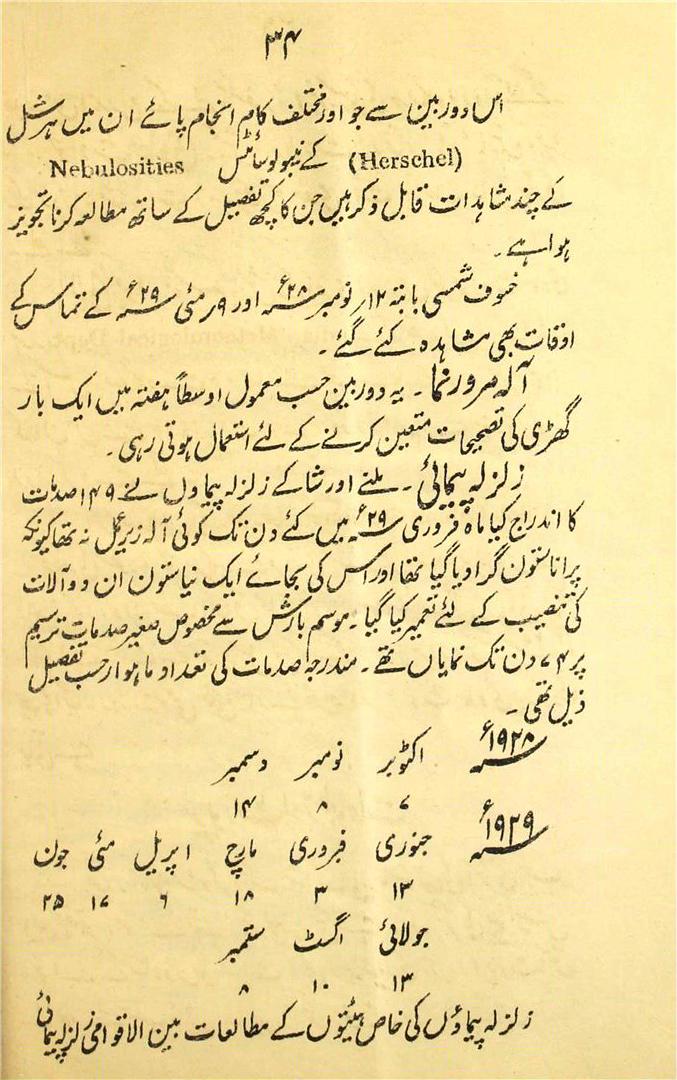 ۳۴
اس دوربین سے جو اور مختلف کام انجام پائے ان میں ہرشل
(Herschel) کے نیبولوسائٹس Nebulosities
کے چند مشاہدات قابل ذکر ہیں جن کا کچھ تفصیل کے ساتھ مطالعہ کرنا تجویز
ہوا ہے۔
خسوف شمسی بابتہ ۱۲؍ نومبر سنہ ۲۸ء اور ۹؍ مئی سنہ ۲۹ء کے تماس کے
اوقات بھی مشاہدہ کئے گئے۔
آلہ مرور نما۔ یہ دوربین حسب معمول اوسطاً ہفتہ میں ایک بار
گھڑی کی تصحیحات متعین کرنے کے لئے استعمال ہوتی رہی۔
زلزلہ پیمائی۔ ملنے اور شا کے زلزلہ پیماول نے ۱۴۹ صدمات
کا اندراج کیا ماہ فروری سنہ ۲۹ء میں کئے دن تک کوئی آلہ زیر عمل نہ تھا کیونکہ
پرانا ستون گرا دیا گیا تھا اور اس کی بجائے ایک نیا ستون ان دو آلات
کی تنصیب کے لئے تعمیر کیا گیا۔ موسم بارش سے مخصوص صغیر صدمات ترسیم
پر ۷۴ دن تک نمایاں تھے۔ مندرجہ صدمات کی تعداد ماہوار حسب تفصیل
ذیل تھی۔
سنہ ۱۹۲۸ء اکٹوبر نومبر دسمبر
۷ ۸ ۱۴
سنہ ۱۹۲۹ء جنوری فبروری مارچ اپریل مئی جون
۱۳ ۳ ۱۸ ۶ ۱۷ ۲۵
جولائی اگسٹ ستمبر
۱۳ ۱۰ ۸
زلزلہ پیماؤں کی خاص ہیئتوں کے مطالعات بین الاقوامی زلزلہ پیمائی